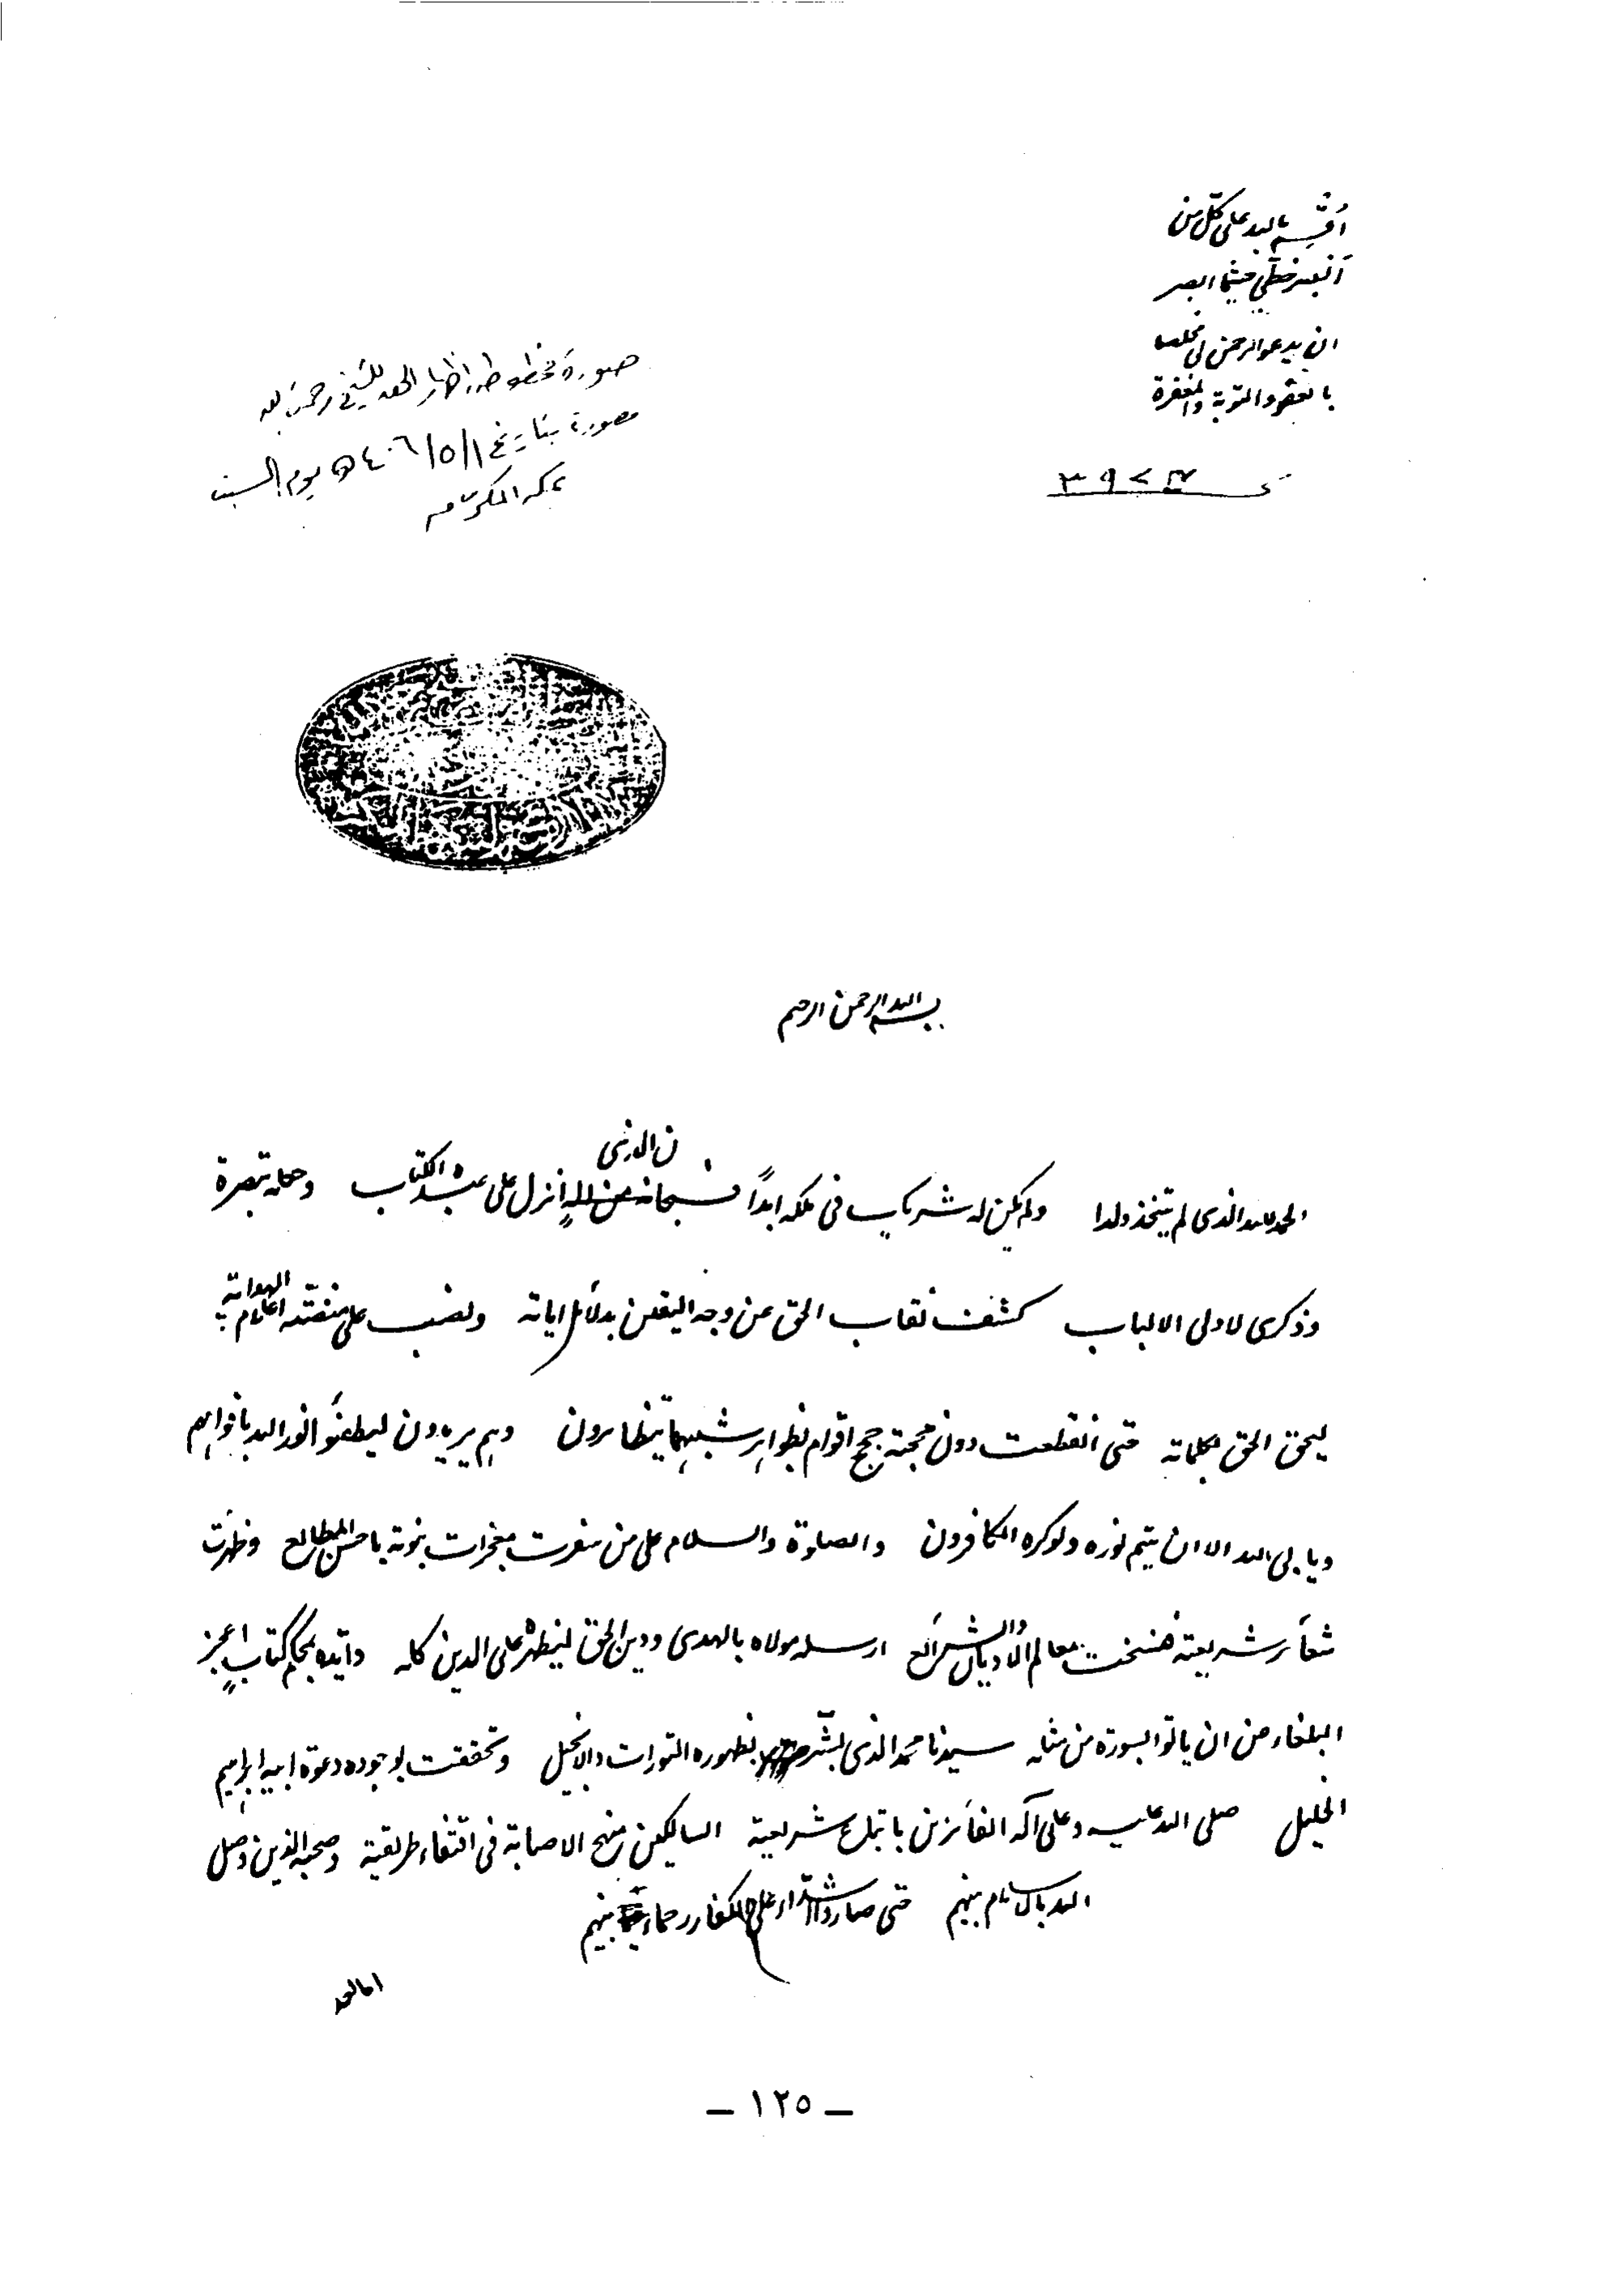 أقسم بالله على كل من
أبصر خطي حيثما ابصر
ان يدعو الرحمن لي مخلصا
بالعفو والتوبة والمغفرة
صورة مخطوطة إظهار الحق للشيخ رحمة الله
مصورة بتاريخ ١/٥/١٤٠٦ هـ يوم السبت
بمكة المكرمة
بسم الله الرحمن الرحيم
الحمد لله الذي لم يتخذ ولدا ولم يكن له شريك في ملكه ابدًا فسبحان الذي انزل على عبده الكتاب وجعله تبصرة
وذكرى لاولى الالباب كشف نقاب الحق عن وجه اليقين بدلائل اياته ونصب على منصته اعلام الهداية
ليحق الحق بكلماته حتى انقطعت دون حجته حجج اقوام بظواهر شبهها يتظاهرون وهم يريدون ليطفئوا نور الله بافواههم
ويابى الله الا ان يتم نوره ولو كره الكافرون والصلوة والسلام على من سفرت معجزات نبوته باحسن المطالع وظهرت
شعائر شريعته فنسخت معالم الاديان والشرائع ارسله مولاه بالهدى ودين الحق ليظهره على الدين كله وأيده بمحكم كتاب اعجز
البلغاء من ان ياتوا بسورة من مثله سيدنا محمد الذي بشر بظهوره التورات والانجيل وتحققت بوجوده دعوة ابيه ابراهيم
الخليل صلى الله عليه وعلى آله الفائزين باتباع شريعته السالكين منهج الاصابة في اقتفاء طريقته وصحبه الذين وصل
الله بالاسلام بينهم حتى صاروا اشداء على الكفار رحماء بينهم
اما بعد
– ١٢٥ –